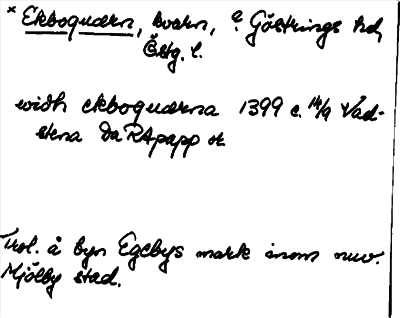 × Ekboquærn, kvarn, ? Göstrings hd,
Östg. l.
widh ekboquærna 1399 c. 14/9 Vad-
stena Da RApapp or
Trol. å byn Egebys mark inom nuv.
Mjölby stad.